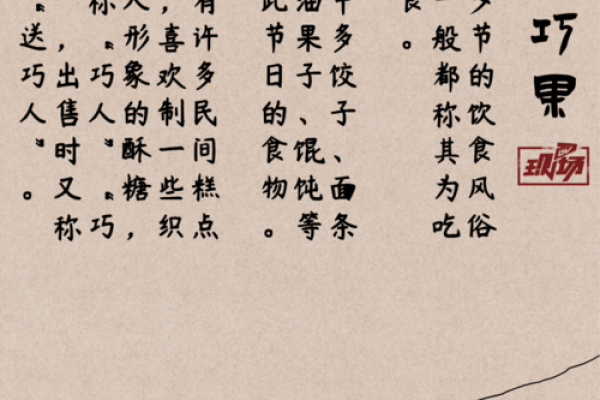 巧果
现场
夕节的饮食风俗
一般都称其为吃
食。
多饺子、面条
油果子、馄饨等
此节日的食物。
有许多民间糕点
，喜欢制一些织
人形象的酥糖，
称“巧人”“巧
，出售时又称
“送巧人”。